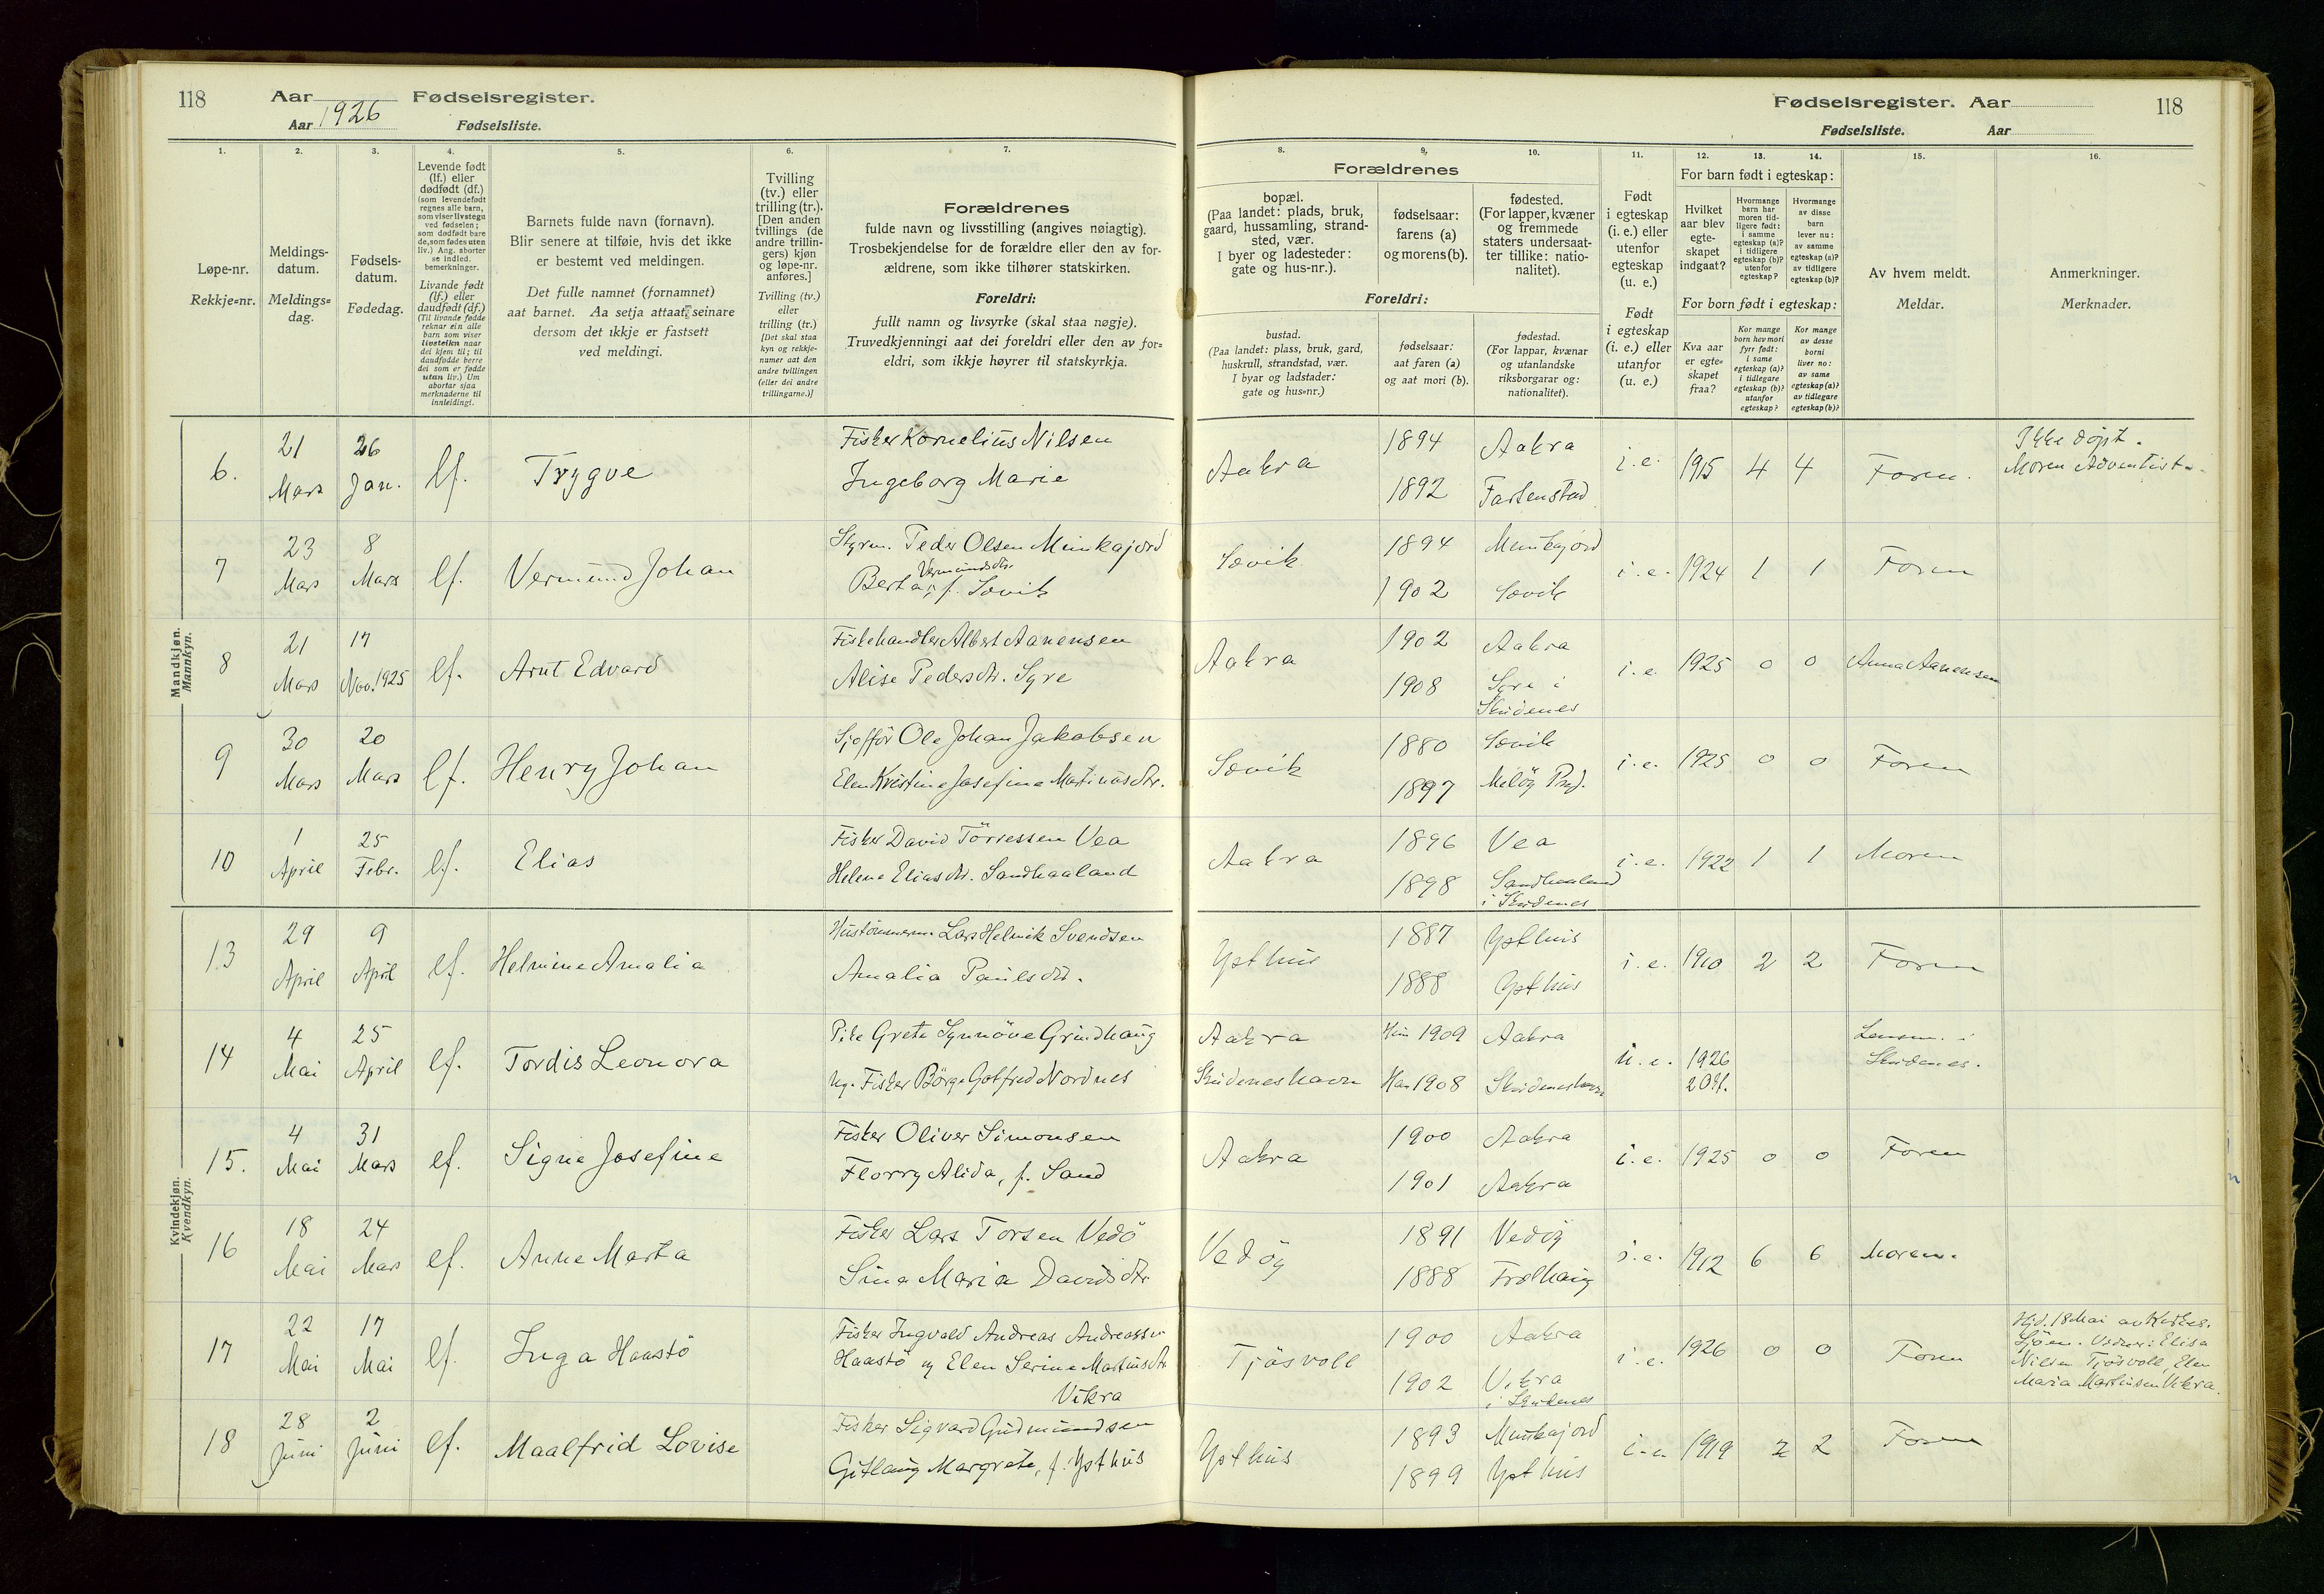 118
Aar 1926 Fødselsregister.
Aar Fødselsliste.
Fødselsregister. Aar
118
Fødselsliste. Aar
1.
2.
3.
4.
5.
6.
7.
8.
9.
10.
11.
12.
13.
14.
15.
16.
Løpe-nr.
Rekkje=nr.
Meldings-
datum.
Meldings=
dag.
Fødsels-
datum.
Fødedag.
Levende født
(lf.) eller
dødfødt (df.)
(som levendefødt
regnes alle barn,
som viser livstegn
ved fødselen;
som dødfødt bare
de, som fødes uten
liv.) Ang. aborter
se indled.
bemerkninger.
Livande født
(lf.) eller
daudfødt (df.)
(Til livande fødde
reknar ein alle
born som viser
livsteikn naar
dei kjem til; til
daudfødde berre
dei som er fødde
utan liv.) Um
abortar sjaa
merknaderne til
innleidingi.
Barnets fulde navn (fornavn).
Blir senere at tilføie, hvis det ikke
er bestemt ved meldingen.
Det fulle namnet (fornamnet)
aat barnet. Aa setja attaat, seinare
dersom det ikkje er fastsett
ved meldingi.
Tvilling
(tv.) eller
trilling (tr.).
[Den anden
tvillings (de
andre trillin-
gers) kjøn
og løpe-nr.
anføres.]
Tvilling (tv.)
eller
trilling (tr.)
[Det skal staa
kyn og rekkje-
numer aat den
andre tvillingen
(eller dei andre
trillingarne.)]
Forældrenes
fulde navn og livsstilling (angives nøiagtig).
Trosbekjendelse for de forældre eller den av for-
ældrene, som ikke tilhører statskirken.
Foreldri:
fullt namn og livsyrke (skal staa nøgje).
Truvedkjenningi aat dei foreldri eller den av for=
eldri, som ikkje høyrer til statskyrkja.
Forældrenes
bopæl.
(Paa landet: plads, bruk,
gaard, hussamling, strand-
sted, vær.
I byer og ladesteder:
gate og hus-nr.).
fødselsaar:
farens (a)
og morens (b).
fødested.
(For lapper, kvæner
og fremmede
staters undersaat-
ter tillike: natio-
nalitet).
Foreldri:
bustad.
(Paa landet: plass, bruk, gard,
huskrull, strandstad, vær.
I byar og ladstader:
gate og hus=nr.)
fødselsaar:
aat faren (a)
og aat mori (b).
fødestad.
(For lappar, kvænar
og utanlandske
riksborgarar og:
nationalitet).
Født
i egteskap
(i. e.) eller
utenfor
egteskap
(u. e.)
Født
i egteskap
(i. e.) eller
utanfor
(u. e.)
For barn født i egteskap:
Hvilket
aar blev
egte-
skapet
indgaat?
Hvormange
barn har
moren tid-
ligere født:
i samme
egteskap (a)?
i tidligere
egteskap (b)?
utenfor
egteskap?
Hvormange
av disse
barn
lever nu:
av samme
egteskap (a)?
av tidligere
egteskap (b)?
For born født i egteskap:
Kva aar
er egte=
skapet
fraa?
Kor mange
born hev mori
fyrr født:
i same
egteskap (a)?
i tidlegare
egteskap (b)?
utanfor
egteskap?
Kor mange
av desse
borni
liver no:
av same
egteskap (a)?
av tidlegare
egteskap (b)?
Av hvem meldt.
Meldar.
Anmerkninger.
Merknader.
Mandkjøn.
Mannkyn.
6. 21 Mars 26 Jan. lf. Trygve
Fisker Kornelius Nilsen
Ingeborg Marie
Aakra 1894 Aakra
1892
i.e. 1915 4 4 Faren.
Ikke døpt.
Moren Adventist.
7 23 Mars 8 Mars lf. Vermund Johan
Styrm. Peder Olsen Munkajord
Berta Vermundsdtr. f. Sævik
Sævik 1894 Munkajord
1902 Sævik
i.e. 1924 1 1 Faren
8 21 Mars 17 Nov. 1925 lf. Arnt Edvard
Fiskehandler Albert Aanensen
Alise Pedersdtr. Syre
Aakra 1902 Aakra
1908 Syre i
Skudenes
i.e. 1925 0 0 Anna Aanensen
9 30 Mars 20 Mars lf. Henry Johan
Sjoffør Ole Johan Jakobsen
Elen Kristine Josefine Martinusdtr.
Sævik 1880 Sævik
1897 Meløy
i.e. 1925 0 0 Faren
10 1 April 25 Febr. lf. Elias
Fisker David Törressen Vea
Helene Eliasdtr. Sandhaaland
Aakra 1896 Vea
1898 Sandhaaland
i Skudenes
i.e. 1922 1 1 Moren
Kvindekjøn.
Kvendkyn.
13 29 April 9 April lf. Helmine Amalia
Hustömmerm. Lars Helmik Svendsen
Amalia Paulsdtr.
Ysthus 1887 Ysthus
1888 Ysthus
i.e. 1910 2 2 Faren
14 4 Mai 25 April lf. Tordis Leonora
Pike Grete Synnöve Grindhaug
og Fisker Börge Gotfred Nordnes
Aakra Hun 1909 Aakra
Skudeneshavn Han 1908 Skudeneshavn
u.e. 1926
Lensm. i
Skudenes.
15. 4 Mai 31 Mars lf. Signe Josefine
Fisker Oliver Simonsen
Florry Alida, f. Sand
Aakra 1900 Aakra
1901 Aakra
i.e. 1925 0 0 Faren
16 18 Mai 24 Mars lf. Anne Marta
Fisker Lars Torsen Vedö
Sina Maria Davidsdtr
Vedöy 1891 Vedöy
1888
i.e. 1912 6 6 Moren.
17 22 Mai 17 Mai lf. Inga Haastö
Fisker Ingvald Andreas Andreassen
Haastö og Elen Serine Martinsdtr
Vikra
Tjösvoll 1900 Aakra
1902 Vikra
i Skudenes
i.e. 1926 0 0 Faren
Hjd. 18 Mai av
Vidner: Elisa
Nilsen Tjösvoll, Elen
Maria Martinsen Vikra.
18 28 Juni 2 Juni lf. Maalfrid Lovise
Fisker Sigvard Gudmundsen
Gitlaug Margrete, f. Ysthus
Ysthus 1893 Munkajord
1899 Ysthus
i.e. 1919 2 2 Faren